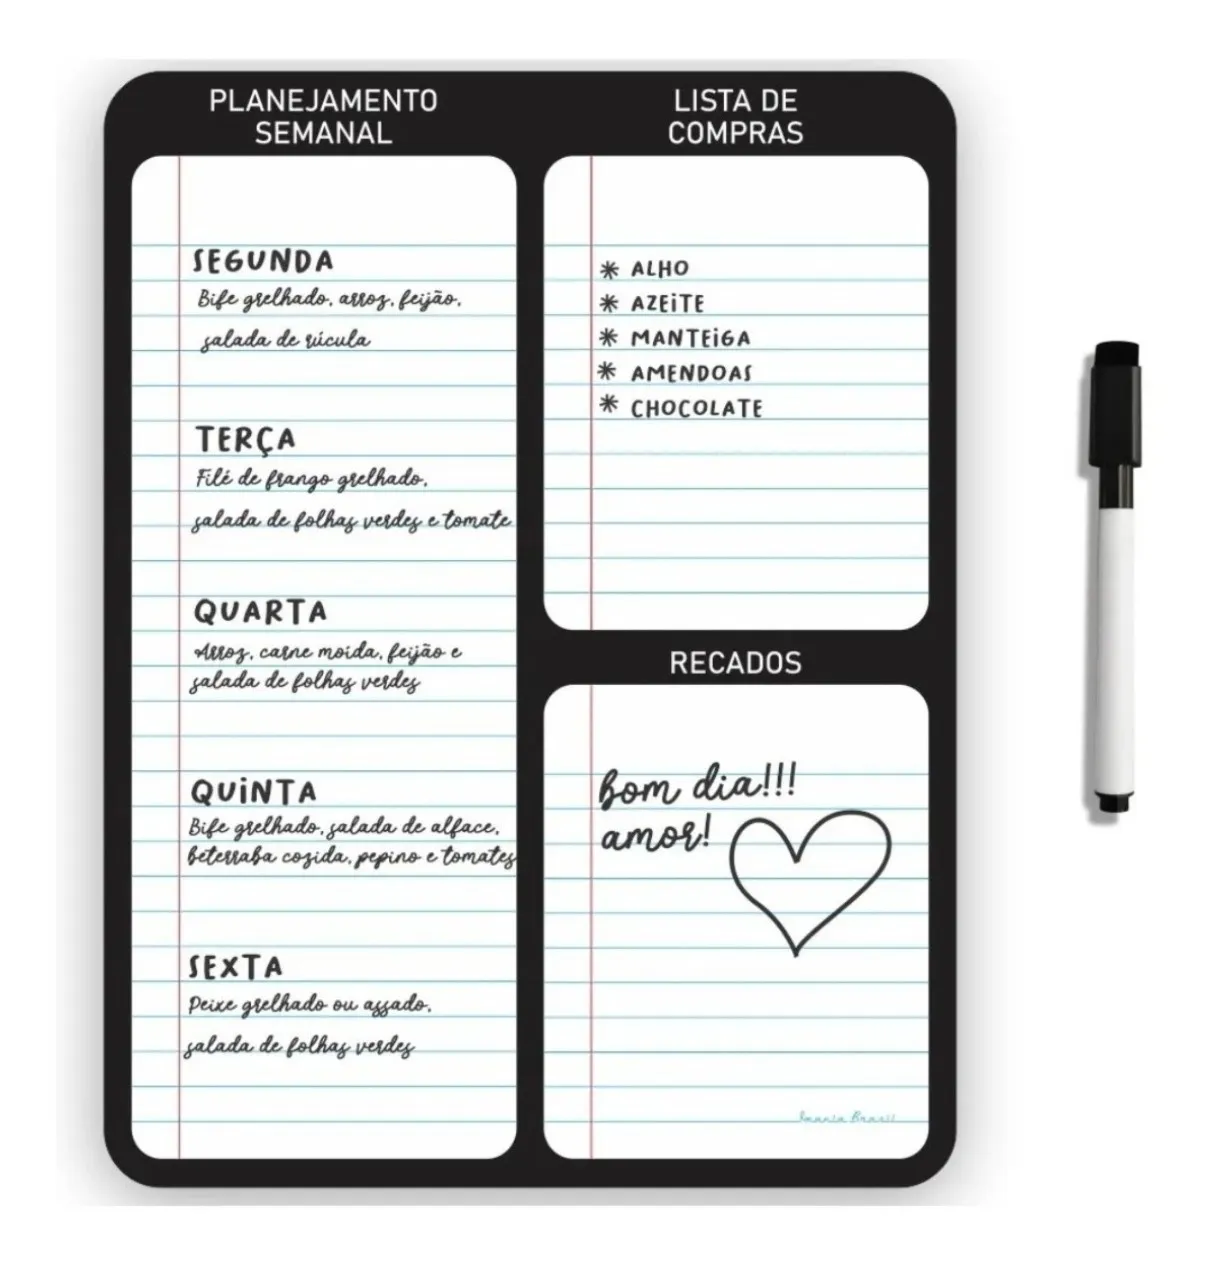 PLANEJAMENTO
SEMANAL
SEGUNDA
Bife grelhado, arroz, feijão,
salada de rúcula
TERÇA
Filé de frango grelhado,
salada de folhas verdes e tomate
QUARTA
Arroz, carne moida, feijão e
salada de folhas verdes
QUINTA
Bife grelhado, salada de alface,
beterraba cozida, pepino e tomates
SEXTA
Peixe grelhado ou assado,
salada de folhas verdes
LISTA DE
COMPRAS
* ALHO
* AZEITE
* MANTEIGA
* AMENDOAS
* CHOCOLATE
RECADOS
bom dia!!!
amor!